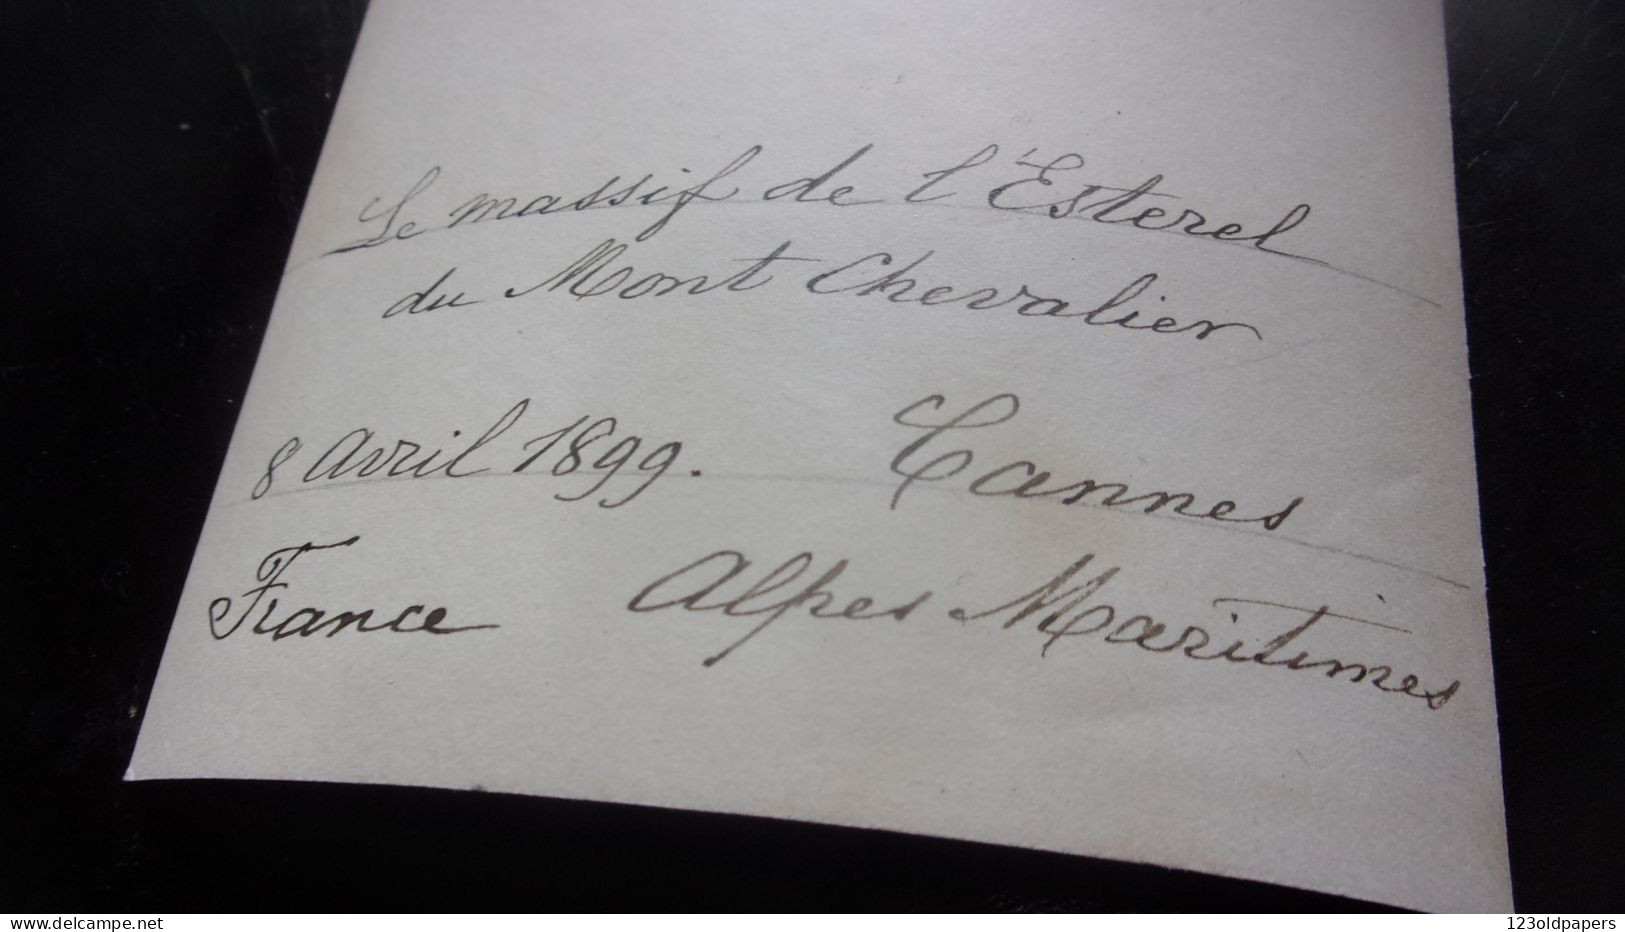 Le massif de l'Esterel
du Mont Chevalier
8 avril 1899. Cannes
France Alpes Maritimes
delcampe.net
123oldpapers